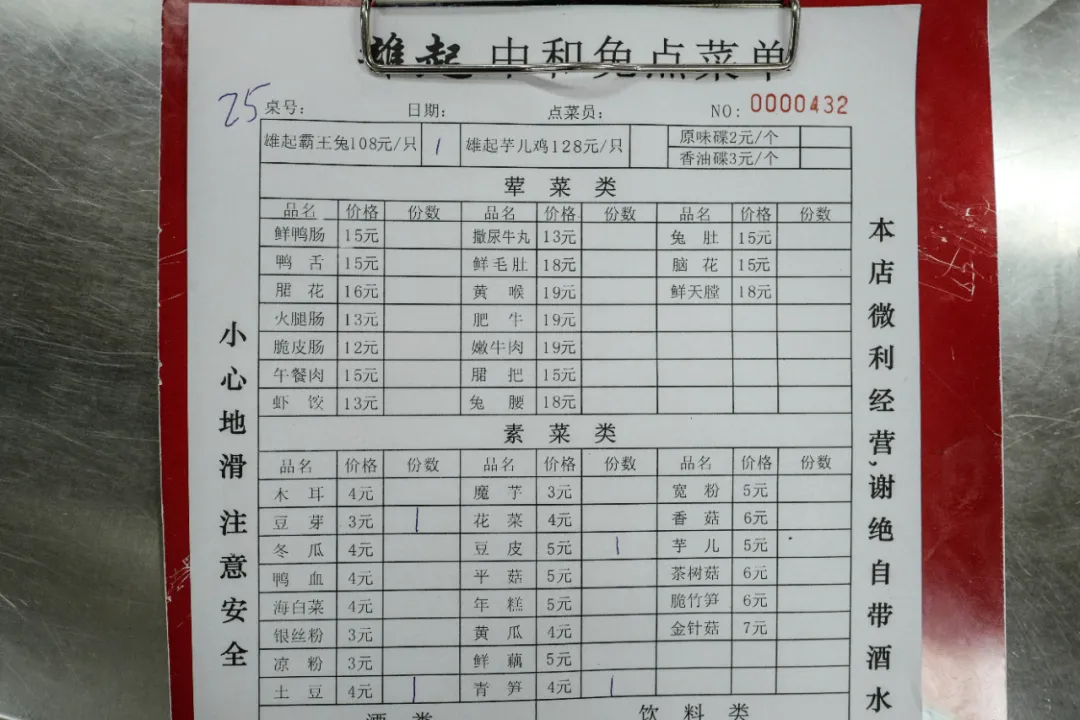 雄起 中和兔点菜单
25 桌号: 日期: 点菜员: NO: 0000432
雄起霸王兔108元/只 1 雄起芋儿鸡128元/只 原味碟2元/个
香油碟3元/个
荤 菜 类
品名 价格 份数 品名 价格 份数 品名 价格 份数
鲜鸭肠 15元 撒尿牛丸 13元 兔 肚 15元
鸭 舌 15元 鲜毛肚 18元 脑 花 15元
腒 花 16元 黄 喉 19元 鲜天膛 18元
火腿肠 13元 肥 牛 19元
脆皮肠 12元 嫩牛肉 19元
午餐肉 15元 腒 把 15元
虾 饺 13元 兔 腰 18元
素 菜 类
品名 价格 份数 品名 价格 份数 品名 价格 份数
木 耳 4元 魔 芋 3元 宽 粉 5元
豆 芽 3元 1 花 菜 4元 香 菇 6元
冬 瓜 4元 豆 皮 5元 1 芋 儿 5元
鸭 血 4元 平 菇 5元 茶树菇 6元
海白菜 4元 年 糕 5元 脆竹笋 6元
银丝粉 3元 黄 瓜 4元 金针菇 7元
凉 粉 3元 鲜 藕 5元
土 豆 4元 1 青 笋 4元 1
酒 类 饮 料 类
小心地滑 注意安全
本店微利经营,谢绝自带酒水